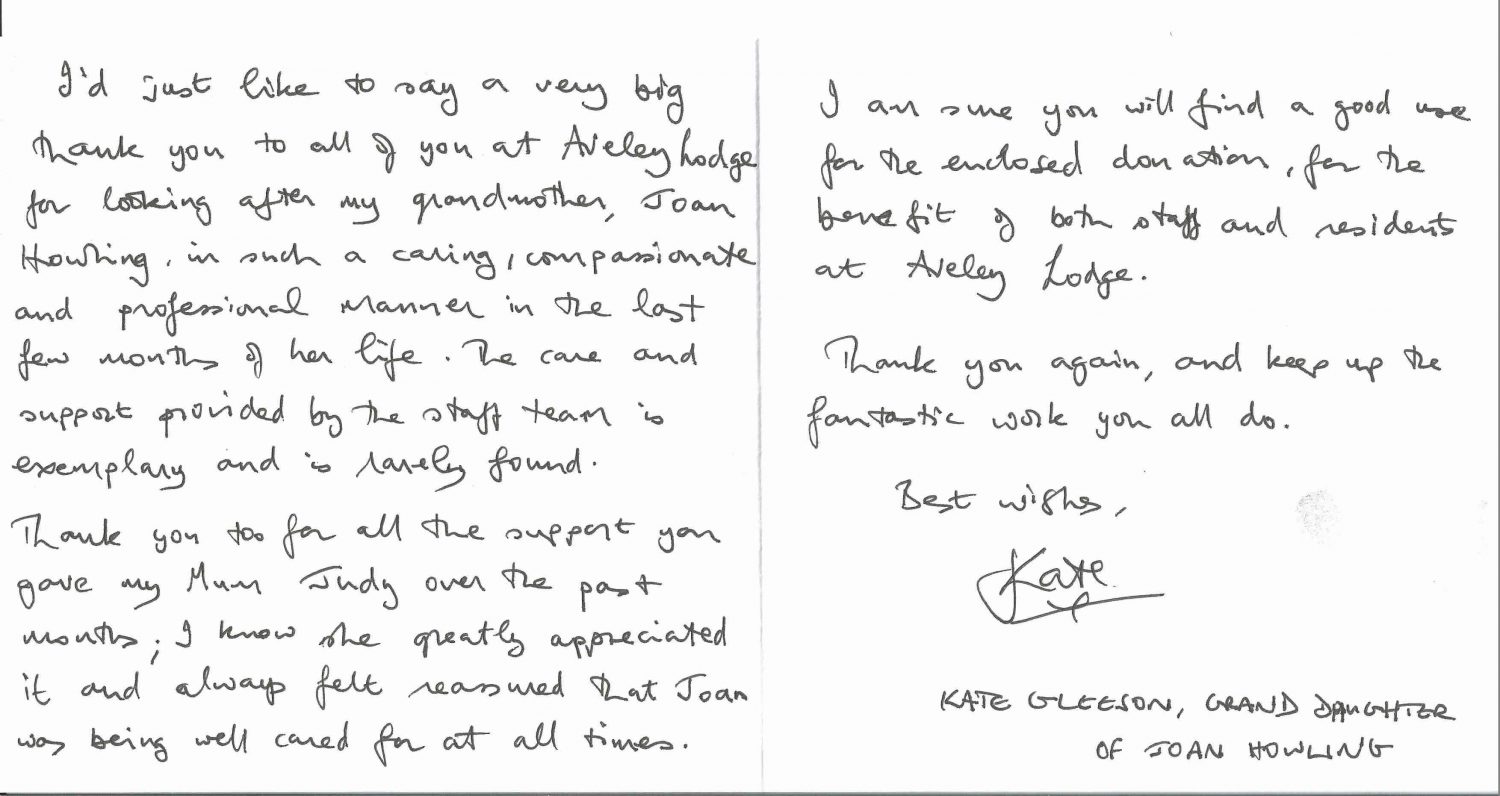 I'd just like to say a very big
thank you to all of you at Aveley Lodge
for looking after my grandmother, Joan
Howling, in such a caring, compassionate
and professional manner in the last
few months of her life. The care and
support provided by the staff team is
exemplary and is rarely found.
Thank you too for all the support you
gave my Mum Judy over the past
months; I know she greatly appreciated
it and always felt reassured that Joan
was being well cared for at all times.
I am sure you will find a good use
for the enclosed donation, for the
benefit of both staff and residents
at Aveley Lodge.
Thank you again, and keep up the
fantastic work you all do.
Best wishes,
Kate
KATE GLEESON, GRAND DAUGHTER
OF JOAN HOWLING